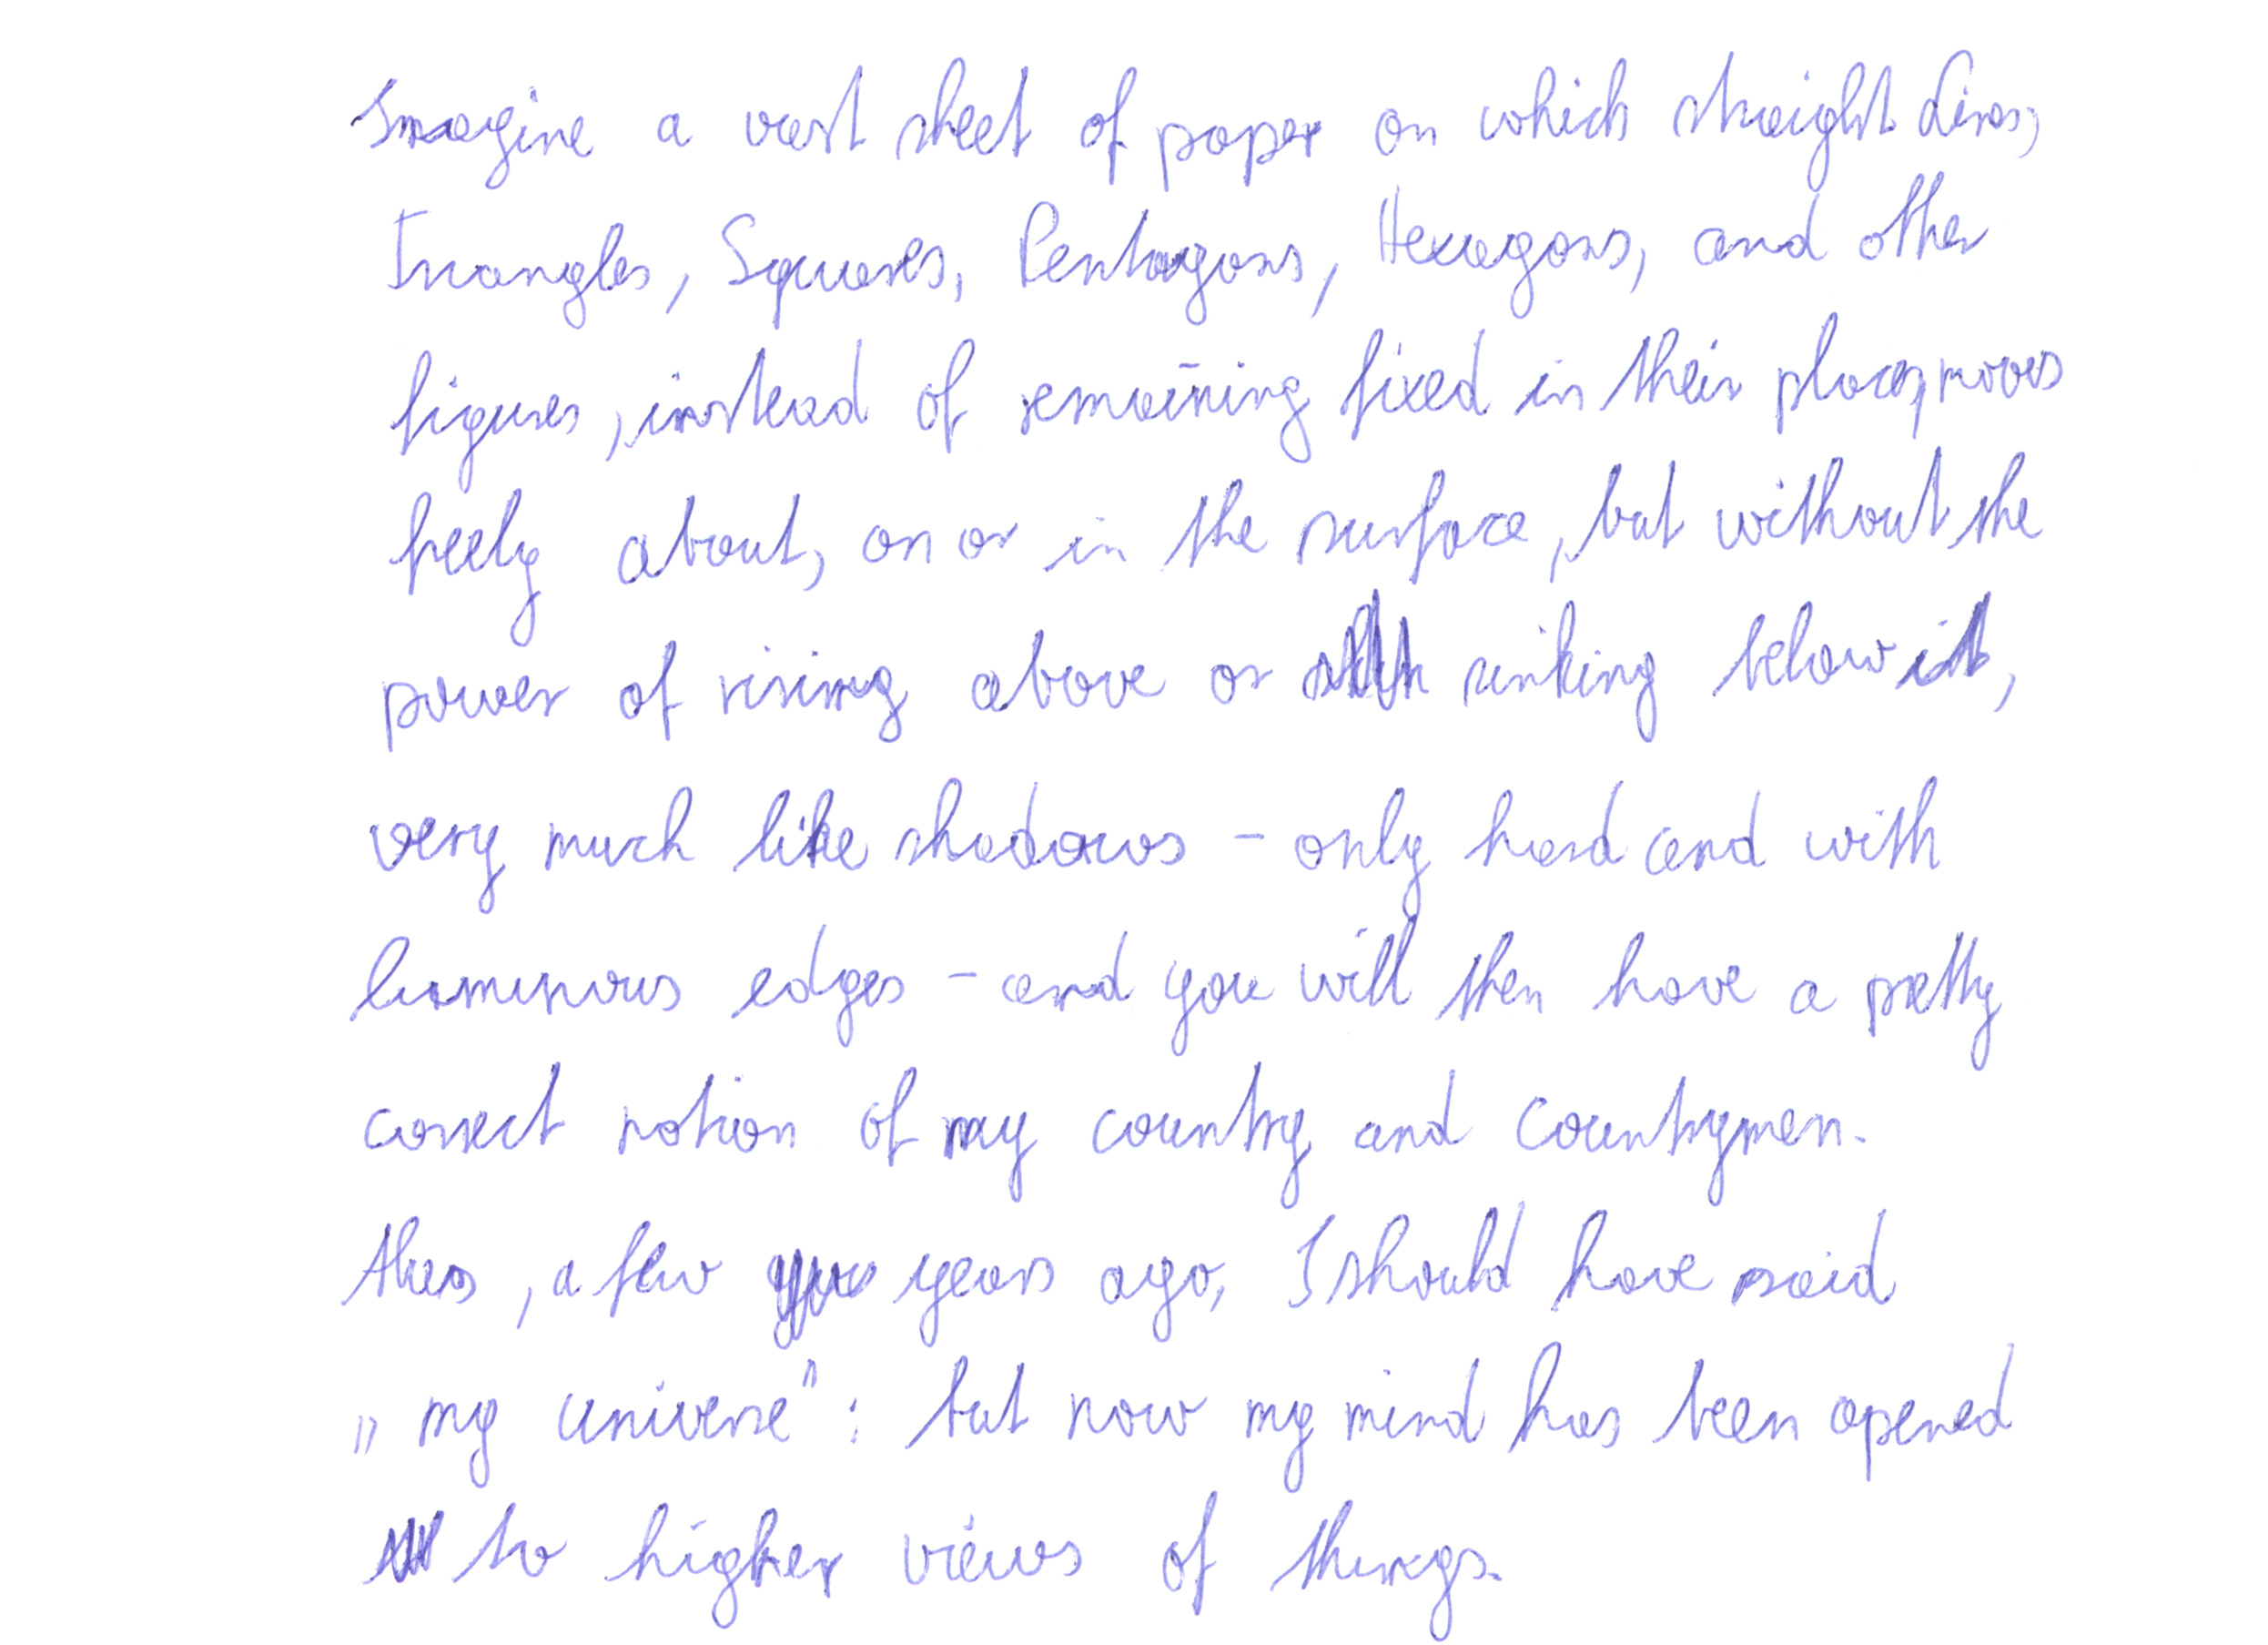 Imagine a vast sheet of paper on which straight Lines,
Triangles, Squares, Pentagons, Hexagons, and other
figures, instead of remaining fixed in their places, moves
freely about, on or in the surface, but without the
power of rising above or sinking below it,
very much like shadows - only hard and with
luminous edges - and you will then have a pretty
correct notion of my country and countrymen.
Alas, a few years ago, I should have said
„my universe": but now my mind has been opened
to higher views of things.